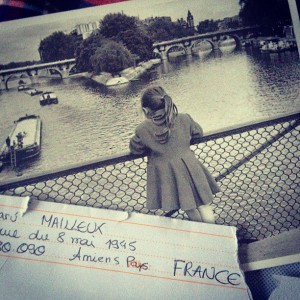 MAILLEUX
rue du 8 mai 1945
80 090
Amiens Pays: FRANCE